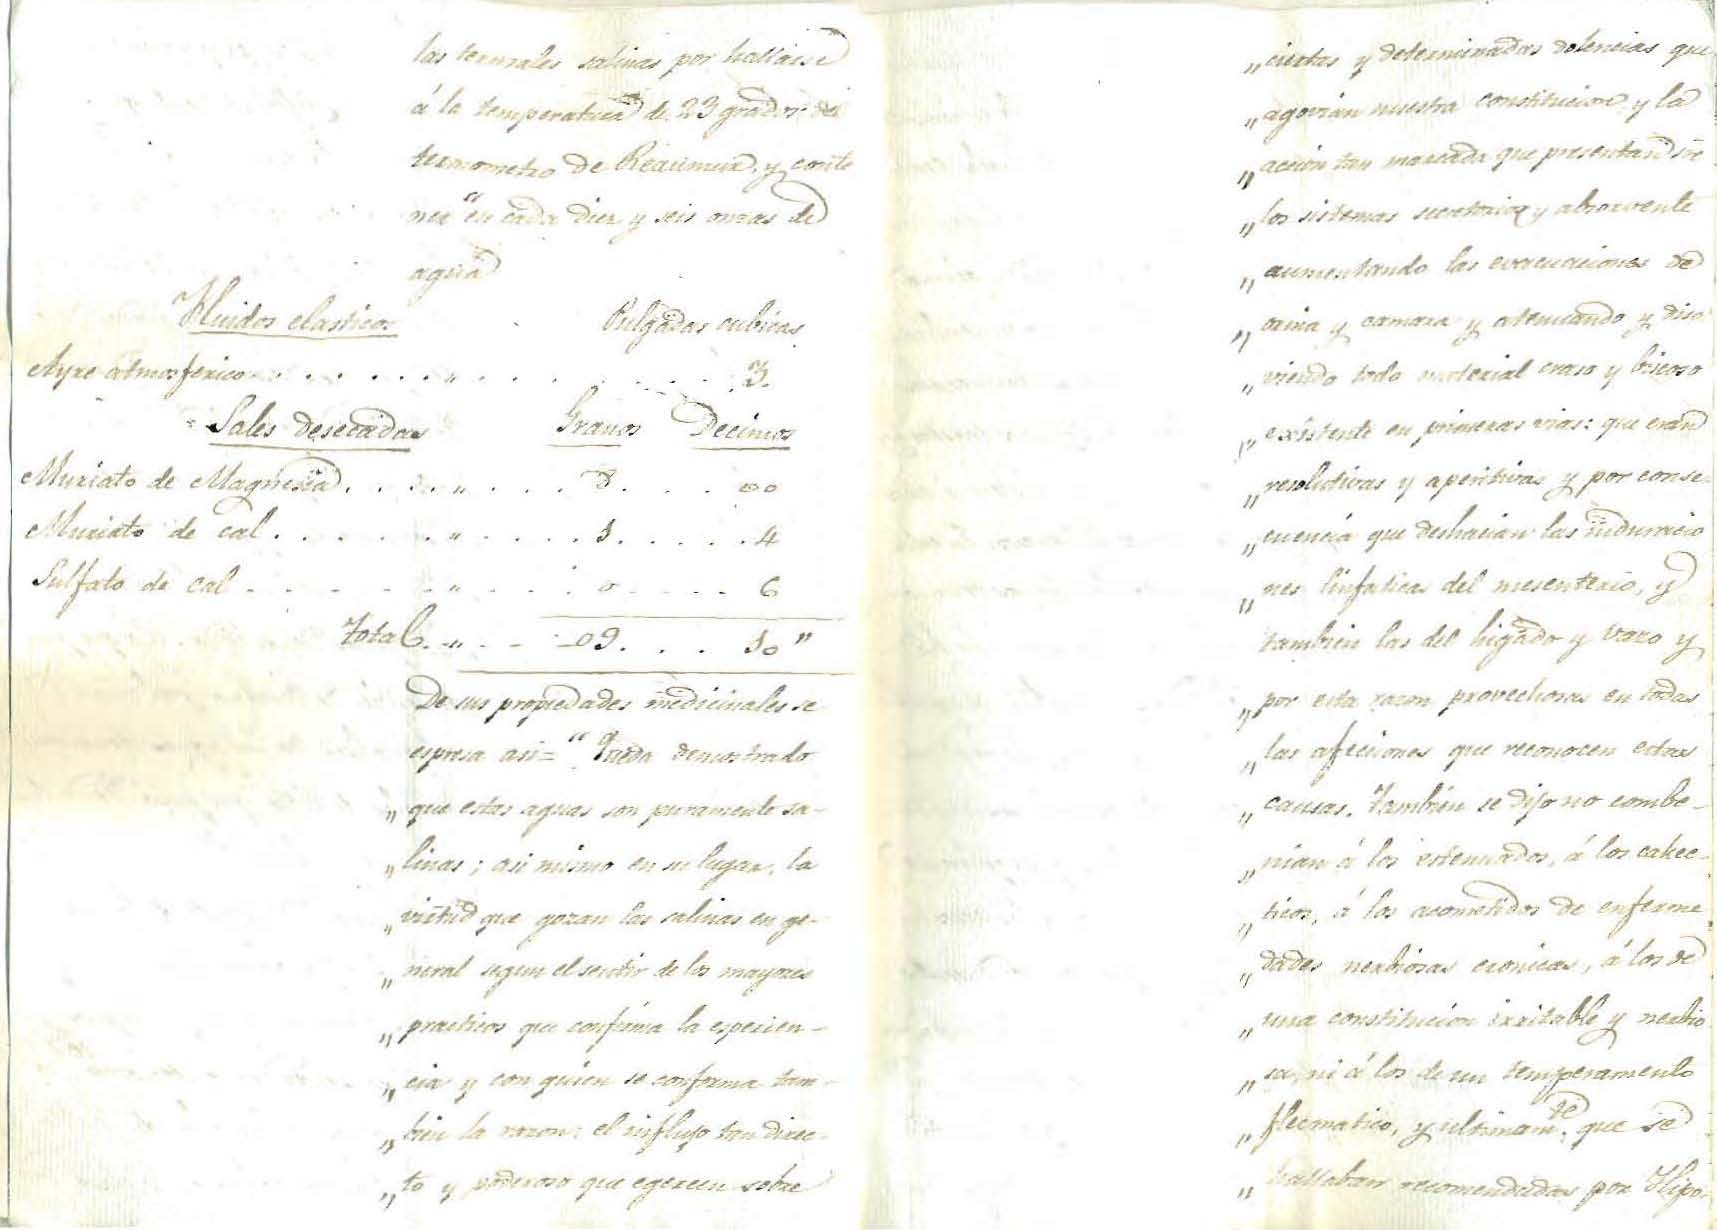 las termales salinas por hallarse
á la temperatura de 23 grados del
termometro de Reaumur, y conte
ner "en cada diez y seis onzas de
agua
Fluidos elasticos Pulgadas cubicas
Ayre atmosferico . . . . . . „ . . . . . . . . 3.
Sales desecadas Granos Decimos
Muriato de Magnesia . . . . „ . . . 8 . . . . 00
Muriato de cal . . . . . . „ . . . . 1 . . . . . 4
Sulfato de cal . . . . . . „ . . . . 0 . . . . 6
Total . „ . . 09 . . . 10 "
De sus propiedades medicinales se
espresa asi = " Queda demostrado
„ que estas aguas son puramente sa-
„ linas; asi mismo en su lugar, la
„ virtud que gozan las salinas en ge-
„ neral segun el sentir de los mayores
„ practicos que confirma la esperien-
„ cia y con quien se conforma tam-
„ bien la razon: el influjo tan direc-
„ to y poderoso que egercen sobre
„ ciertas y determinadas dolencias que
„ agovian nuestra constitucion, y la
„ accion tan marcada que presentan sre
„ los sistemas secretorios y absorvente
„ aumentando las evacuaciones de
„ orina y camara y atenuando y diso
„ viendo todo material craso y biscoso
„ existente en primeras vias: que eran
„ resolutivas y aperitivas y por conse-
„ cuencia que deshacian las induracio
„ nes linfaticas del mesenterio, y
„ tambien las del higado y vazo y
„ por esta razon provechosas en todas
„ las afecciones que reconocen estas
„ causas. Tambien se dijo no combe-
„ nian á los estenuados, á los cakec-
„ ticos, á los acometidos de enferme
„ dades nerbiosas cronicas, á los de
„ una constitucion irritable y nerbio
„ sa, ni á los de un temperamento
„ flecmatico, y ultimamte que se
„ hallaban recomendadas por Hipo-